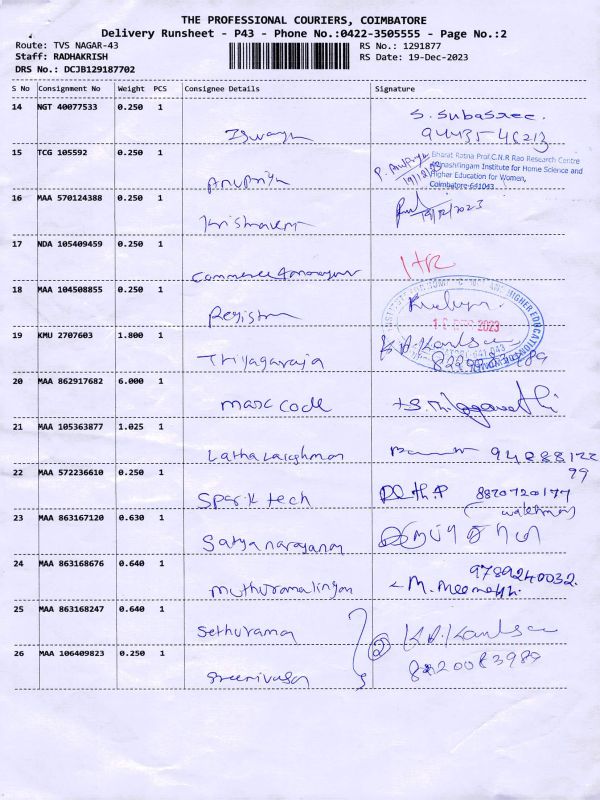 THE PROFESSIONAL COURIERS, COIMBATORE
Delivery Runsheet - P43 - Phone No.:0422-3505555 - Page No.:2
Route: TVS NAGAR-43 RS No.: 1291877
Staff: RADHAKRISH RS Date: 19-Dec-2023
DRS No.: DCJB129187702
S No Consignment No Weight PCS Consignee Details Signature
14 NGT 40077533 0.250 1
S. Subasree.
15 TCG 105592 0.250 1
Anupriya
P. Anupriya 19/12/23
Bharat Ratna Prof.C.N.R Rao Research Centre
Avinashilingam Institute for Home Science and
Higher Education for Women,
Coimbatore-641043
16 MAA 570124388 0.250 1
Krishnaveni 19/12/2023
17 NDA 105409459 0.250 1
Commerce
18 MAA 104508855 0.250 1
Registrar
19 KMU 2707603 1.800 1
Thiyagaraja
20 MAA 862917682 6.000 1
Marc code
21 MAA 105363877 1.025 1
Latha
22 MAA 572236610 0.250 1
Spark tech 8870720177
23 MAA 863167120 0.630 1
Satyanarayanan
24 MAA 863168676 0.640 1
Muthuramalingam M. Meenakshi 9789240032.
25 MAA 863168247 0.640 1
Sethuraman
26 MAA 106409823 0.250 1
Sreenivasan 8220083989